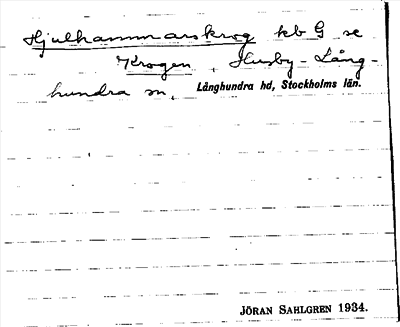 Hjulhammarskrog kb G se
Krogen, Husby-Lång-
hundra sn, Långhundra hd, Stockholms län.
JÖRAN SAHLGREN 1934.